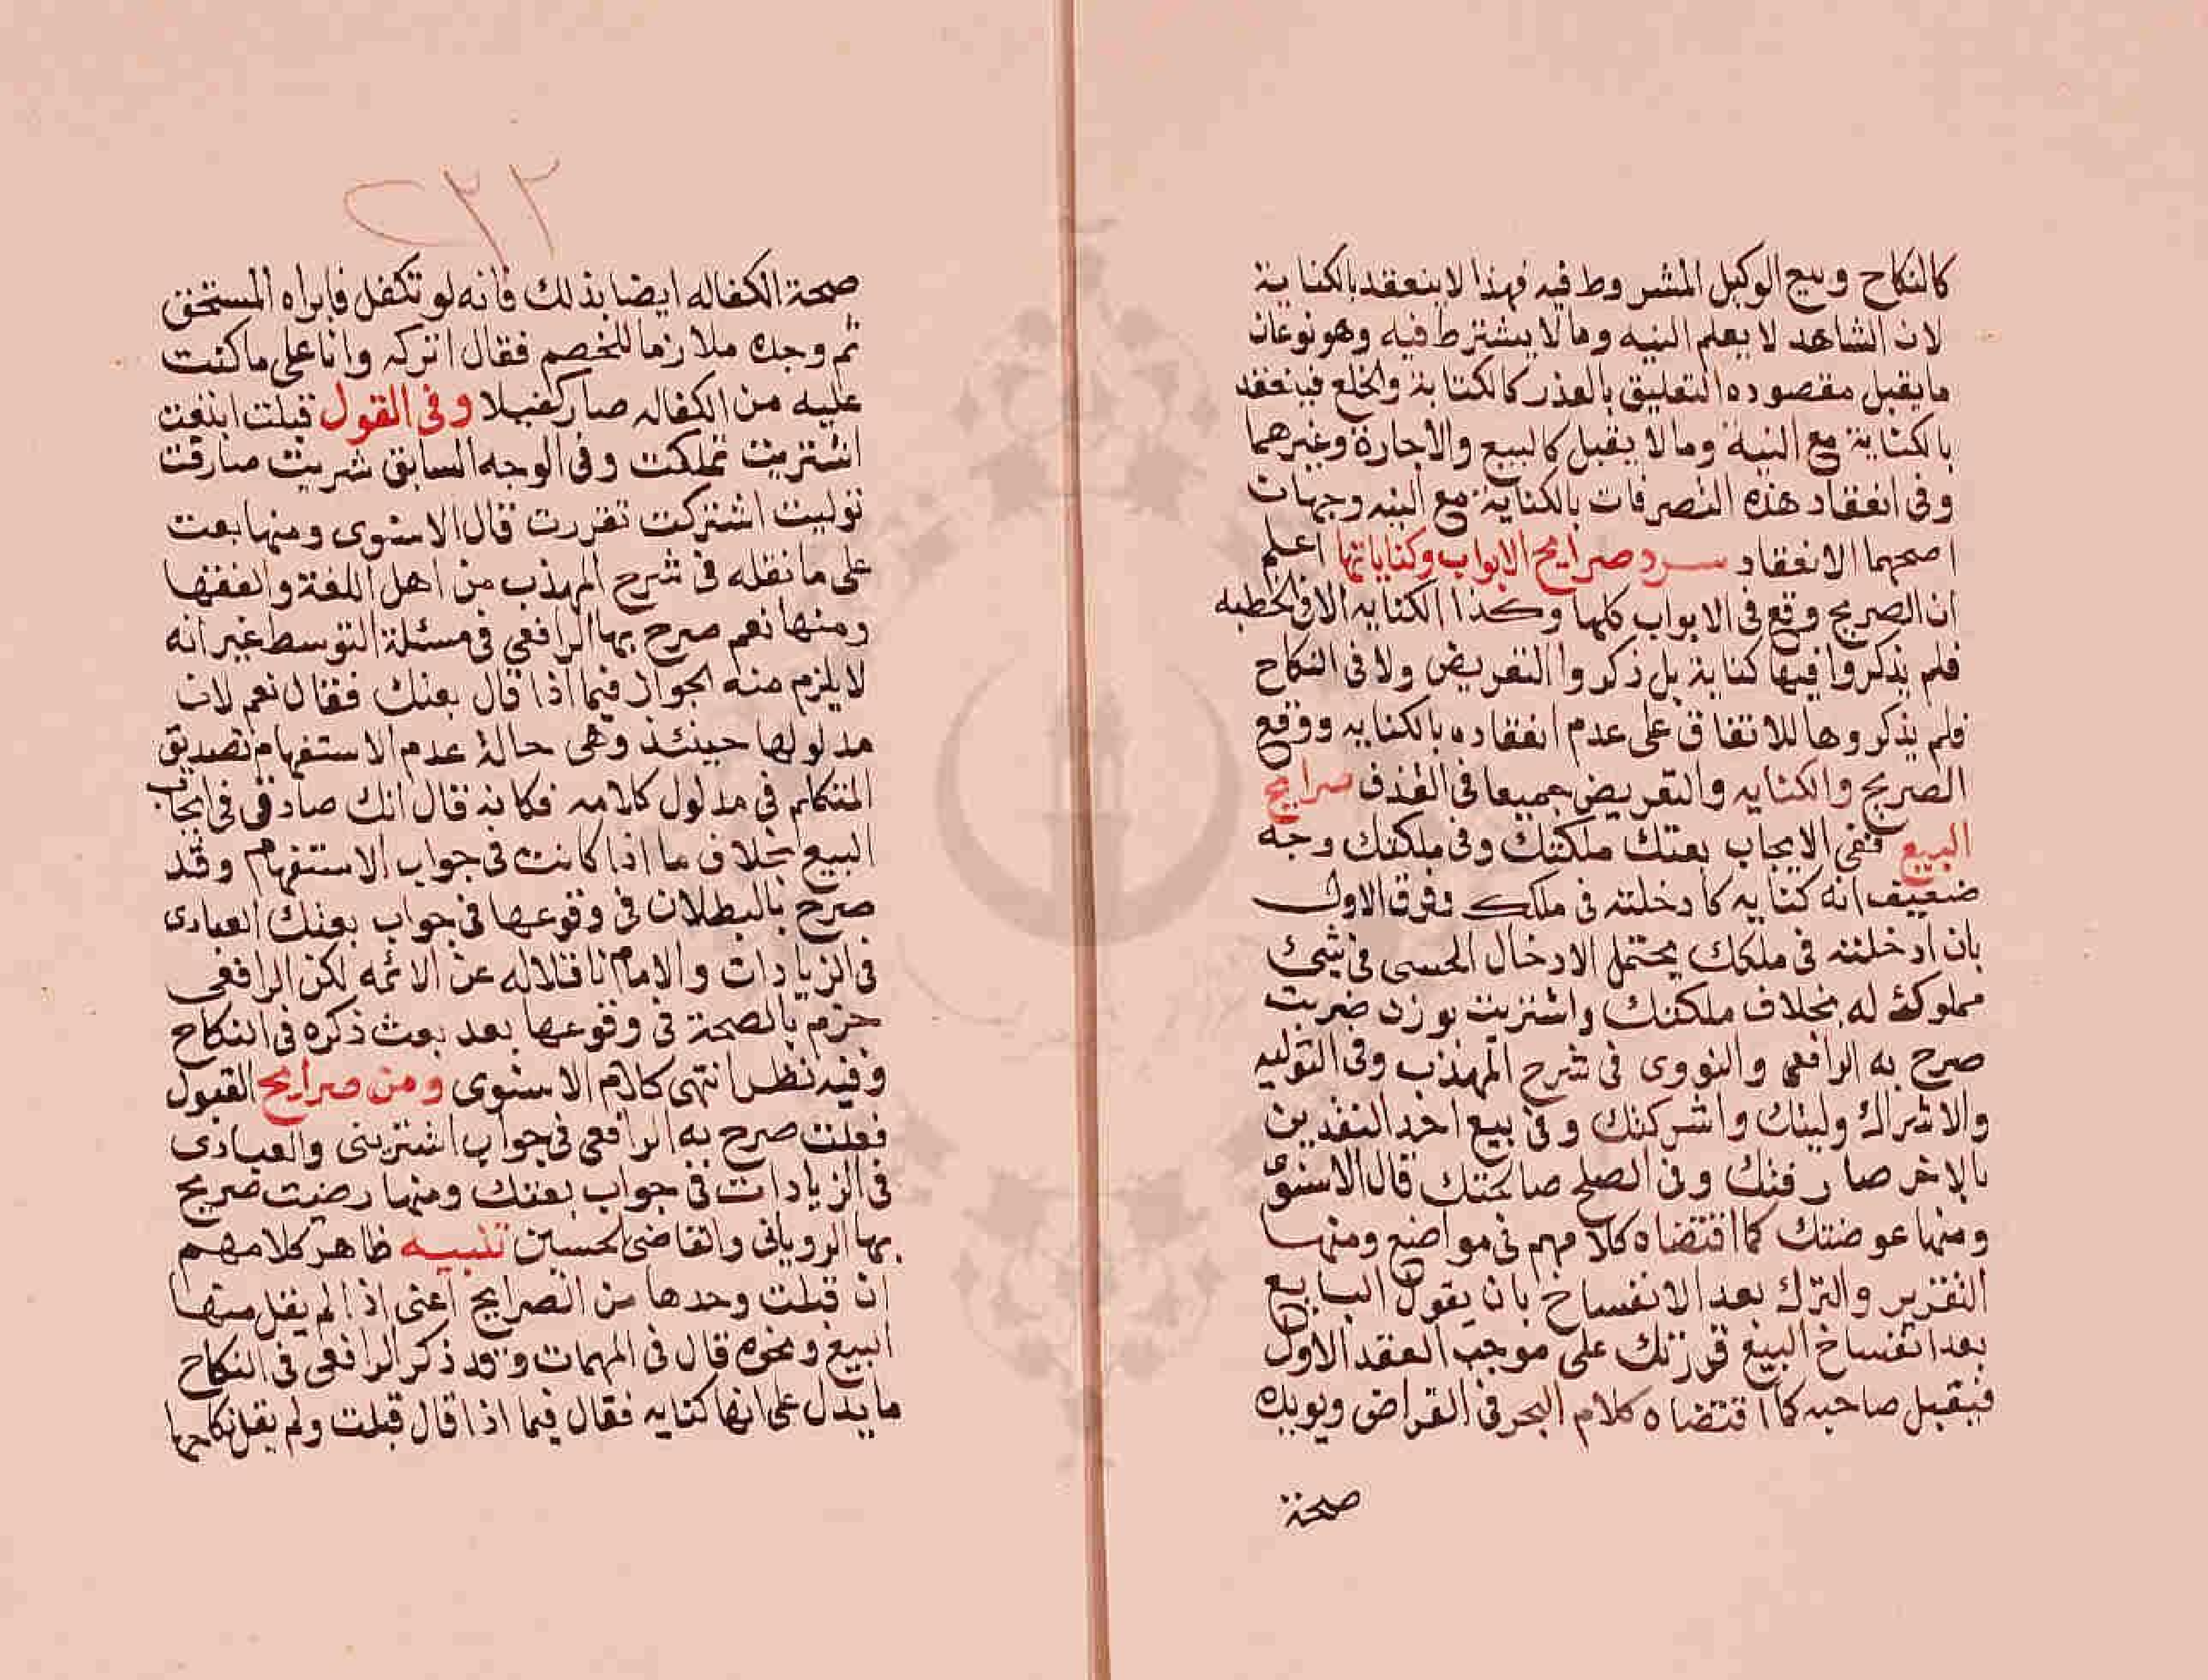 كالنكاح وبيع الوكيل المشروط فيه فهذا لا ينعقد بالكناية
لان الشاهد لا يعلم النيه وما لا يشترط فيه وهو نوعان
ما يقبل مقصوده التعليق بالغرر كالكتابة والخلع فينعقد
بالكناية مع النية وما لا يقبل كالبيع والاجارة وغيرهما
وفى انعقاد هذه التصرفات بالكناية مع النيه وجهان
اصحهما الانعقاد سرد صرايح الابواب وكناياتها اعلم
ان الصريح وقع فى الابواب كلها وكذا الكنايه الا فى الخطبه
فلم يذكروا فيها كناية بل ذكروا التعريض ولا فى النكاح
فلم يذكروها للاتفاق على عدم انعقاده بالكنايه ووقع
الصريح والكنايه والتعريض جميعا فى القذف صرايح
البيع ففى الايجاب بعتك ملكتك وفى ملكتك وجه
ضعيف انه كنايه كادخلته فى ملكك وفرق الاول
بان ادخلته فى ملكك يحتمل الادخال الحسى فى شئ
مملوك له بخلاف ملكتك واشتريت بوزن ضربت
صرح به الرافعى والنووى فى شرح المهذب وفى التوليه
والاشراك وليتك واشركتك وفى بيع احد النقدين
بالاخر صارفتك وفى الصلح صالحتك قال الاسنوى
ومنها عوضتك كما اقتضاه كلامهم فى مواضع ومنها
التقرير والترك بعد الانفساخ بان يقول البايع
بعد انفساخ البيع قررتك على موجب العقد الاول
فيقبل صاحبه كما اقتضاه كلام البحر فى القراض ويويك
صحة
٢٢٢
صحة الكفاله ايضا بذلك فانه لو تكفل فابراه المستحق
ثم وجده ملازما للخصم فقال اتركه وانا على ما كنت
عليه من الكفاله صار كفيلا وفى القول قبلت ابتعت
اشتريت تملكت وفى الوجه السابق شريت صارفت
توليت اشتركت تقررت قال الاسنوى ومنها بعت
على ما نقله فى شرح المهذب من اهل اللغة والفقها
ومنها نعم صرح بها الرافعى فى مسئلة التوسط غير انه
لا يلزم منه الجواز فيما اذا قال بعتك فقال نعم لان
مدلولها حينئذ وهى حالة عدم الاستفهام تصديق
المتكلم فى مدلول كلامه فكانه قال انك صادق فى ايجاب
البيع بخلاف ما اذا كانت فى جواب الاستفهام وقد
صرح بالبطلان فى وقوعها فى جواب بعتك العبادى
فى الزيادات والامام ناقلاله عن الائمه لكن الرافعى
جزم بالصحة فى وقوعها بعد بعت ذكره فى النكاح
وفيه نظر انتهى كلام الاسنوى ومن صرايح القبول
فعلت صرح به الرافعى فى جواب اشتر منى والعبادى
فى الزيادات فى جواب بعتك ومنها رضيت صرح
بها الرويانى والقاضى الحسين تنبيه ظاهر كلامهم
ان قبلت وحدها من الصرايح اعنى اذا لم يقل معها
البيع ونحوه قال فى المهمات وقد ذكر الرافعى فى النكاح
ما يدل على انها كنايه فقال فيما اذا قال قبلت ولم يقل نكاحها